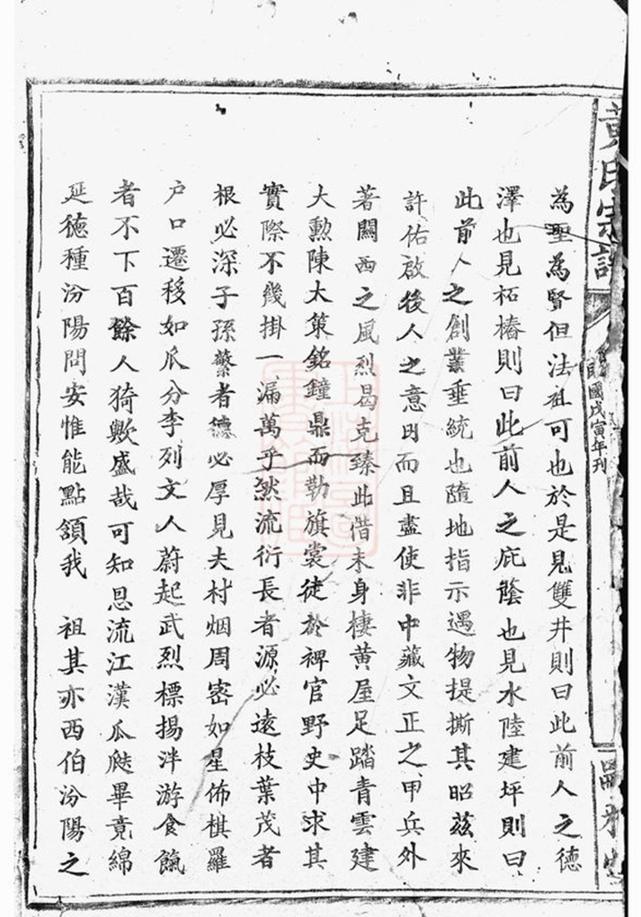 黃氏宗譜
民國戊寅年刊
為聖為賢但法祖可也於是見雙井則曰此前人之德
澤也見柘椿則曰此前人之庇蔭也見水陸建坪則曰
此前人之創業垂統也隨地指示遇物提撕其昭茲來
許佑啟後人之意日而且盡使非中藏文正之甲兵外
著關西之風烈曷克臻此惜未身棲黃屋足踏青雲建
大勳陳大策銘鐘鼎而勒旗裳徒於稗官野史中求其
實際不幾掛一漏萬乎然流衍長者源必遠枝葉茂者
根必深子孫繁者德必厚見夫村烟周密如星佈棋羅
户口遷移如瓜分李列文人蔚起武烈標揚泮游食餼
者不下百餘人猗歟盛哉可知恩流江漢瓜瓞畢竟綿
延德種汾陽問安惟能點頷我 祖其亦西伯汾陽之